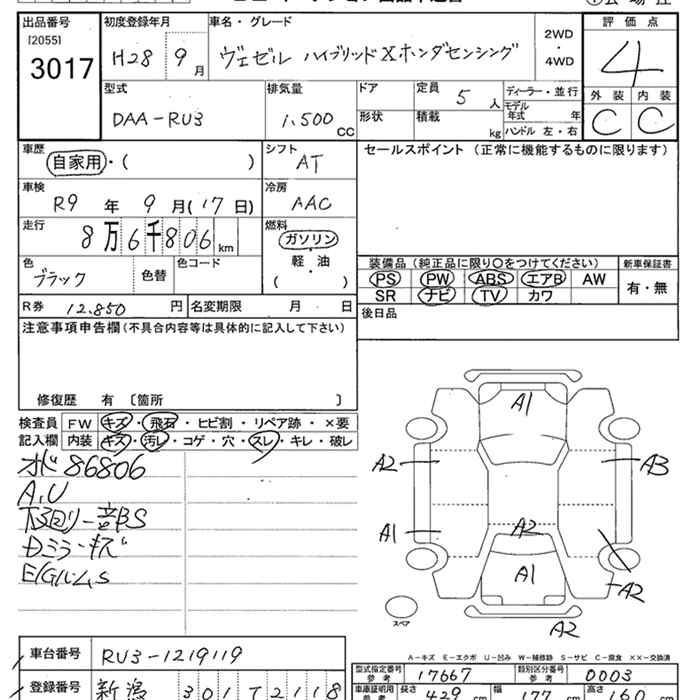 出品番号 [2055] 3017
初度登録年月 H28 9月
車名・グレード ヴェゼル ハイブリッドXホンダセンシング
2WD・4WD
評価点 4
外装 C 内装 C
型式 DAA-RU3
排気量 1,500 CC
ドア 形状
定員 5 人
積載 kg
ディーラー・並行
モデル年式 年
ハンドル 左・右
車歴 自家用・( )
シフト AT
セールスポイント (正常に機能するものに限ります)
車検 R9 年 9 月(17 日)
冷房 AAC
走行 8万6千806 km
燃料 ガソリン・軽油・( )
色 ブラック 色替 色コード
装備品 (純正品に限り○をつけてください)
新車保証書
PS PW ABS エアB AW 有・無
SR ナビ TV カワ
R券 12,850 円 名変期限 月 日
後日品
注意事項申告欄(不具合内容等は具体的に記入して下さい)
修復歴 有 〔箇所 〕
検査員 FW キズ・飛石・ヒビ割・リペア跡・×要
記入欄 内装 キズ・汚レ・コゲ・穴・スレ・キレ・破レ
オド 86806
A,U
下回り一部S
Dミラーキズ
E/GルームS
A1
A2
A3
A1
A2
A1
A2
A2
スペア
A-キズ E-エクボ U-凹み W-補修跡 S-サビ C-腐食 ××-交換済
車台番号 RU3-1219119
型式指定番号 参考 17667 類別区分番号 参考 0003
登録番号 新潟 301 て 2118
車庫証明用 参考 長さ 429 cm 幅 177 cm 高さ 160 cm